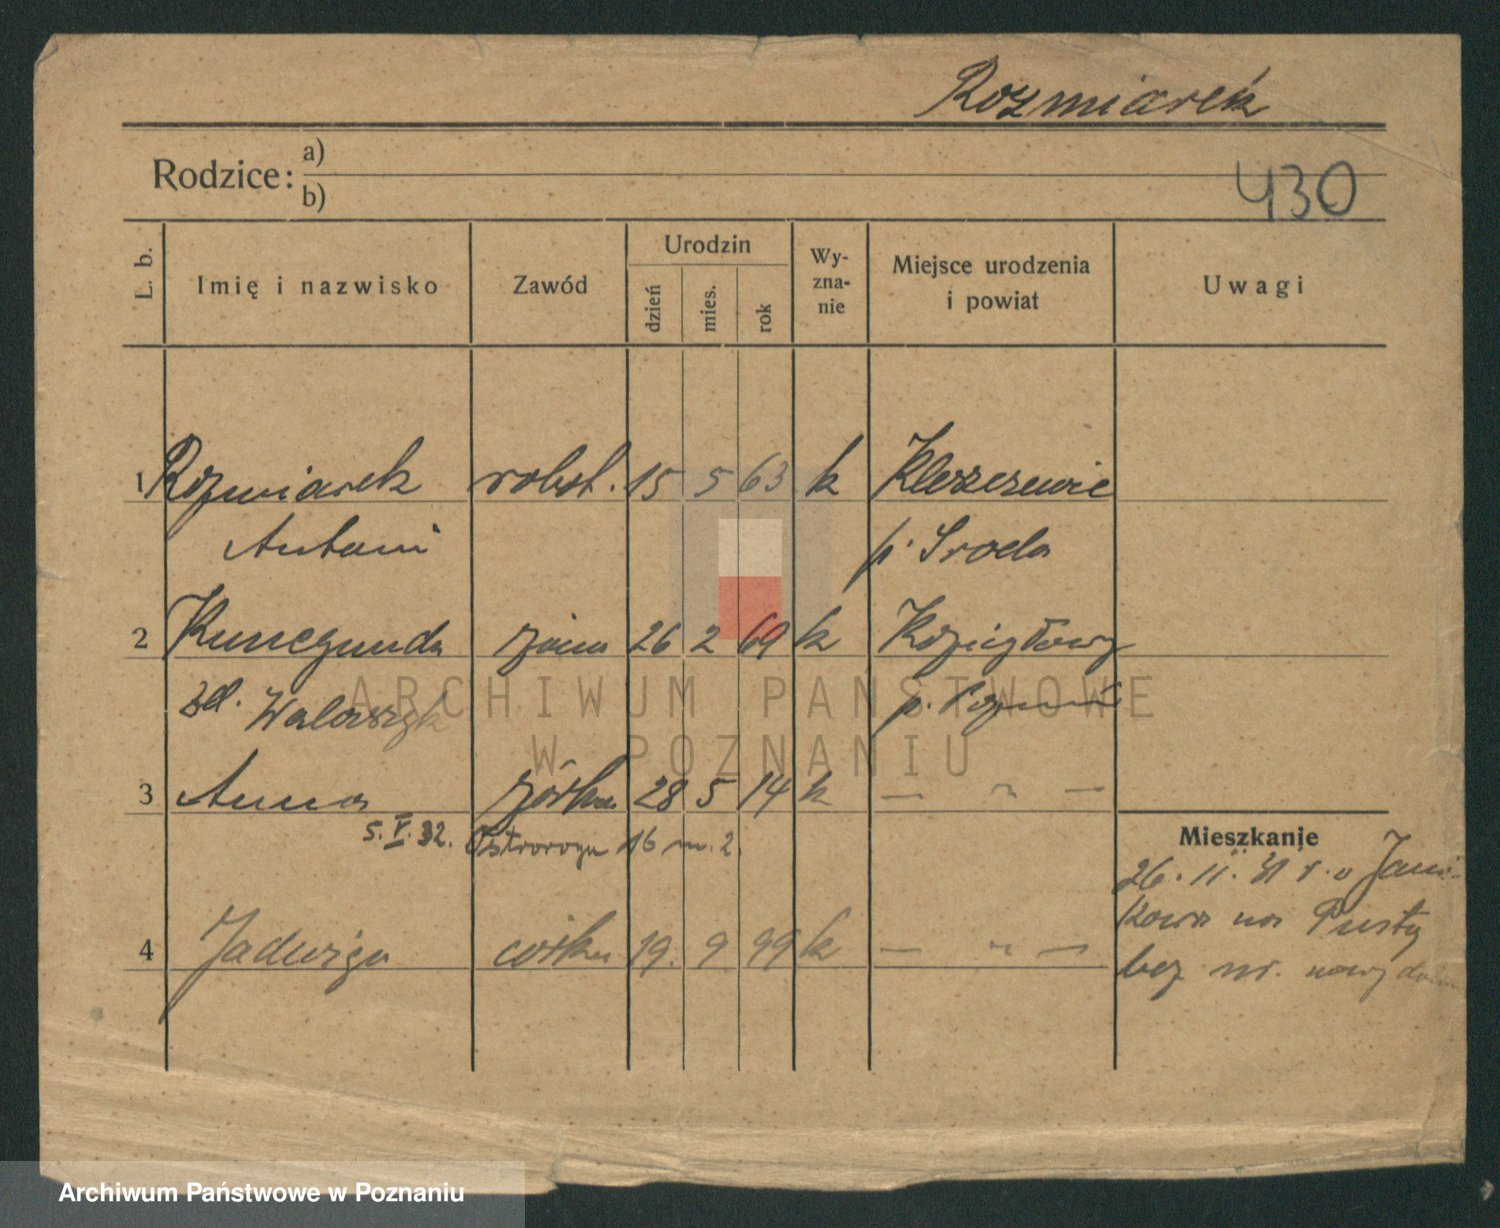 Rozmiarek
Rodzice: a)
b)
430
L. b.
Imię i nazwisko
Zawód
Urodzin
dzień
mies.
rok
Wy-
zna-
nie
Miejsce urodzenia
i powiat
Uwagi
1 Rozmiarek robot. 15 5 63 k
Antoni p. Sroda
2 Kunegunda żona 26 2 69 k Koziegłowy
zd. p. Poznań
3 Anna 28 5 14 k — " —
5. V. 32. Ostroroga 16 m. 2.
Mieszkanie
26. 11. 31 r. Jani-
kowa na Pusty
4 Jadwiga córka 19. 9 99 k — " —
bez nr. nowy dom
ARCHIWUM PAŃSTWOWE
W POZNANIU
Archiwum Państwowe w Poznaniu